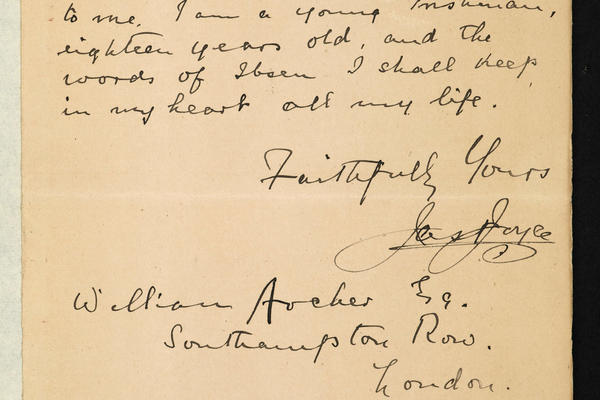 to me. I am a young Irishman,
eighteen years old, and the
words of Ibsen I shall keep
in my heart all my life.
Faithfully Yours
Jas A Joyce
William Archer Esq.
Southampton Row.
London.